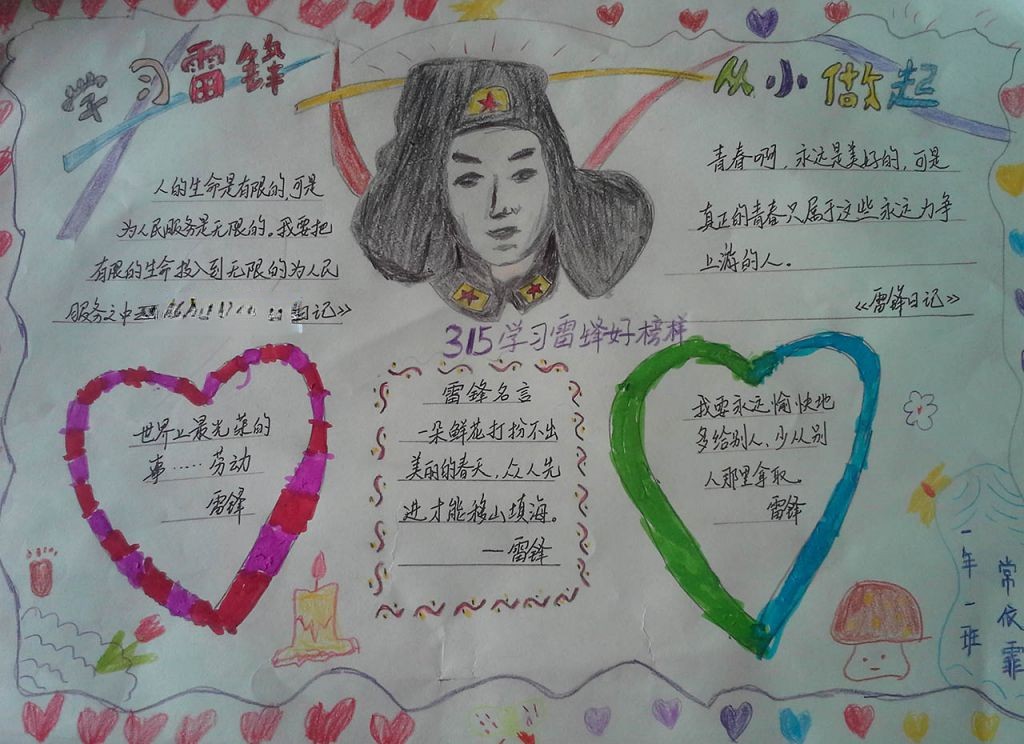 学习雷鋒
从小做起
人的生命是有限的,可是
为人民服务是无限的。我要把
有限的生命投入到无限的为人民
服务之中 日记》
青春啊,永远是美好的,可是
真正的青春只属于这些永远力争
上游的人。
《雷锋日记》
315学习雷锋好榜样
世界上最光荣的
事……劳动
雷锋
雷锋名言
一朵鲜花打扮不出
美丽的春天,众人先
进才能移山填海。
—雷锋
我要永远愉快地
多给别人,少从别
人那里拿取。
雷锋
一年一班
常依霏